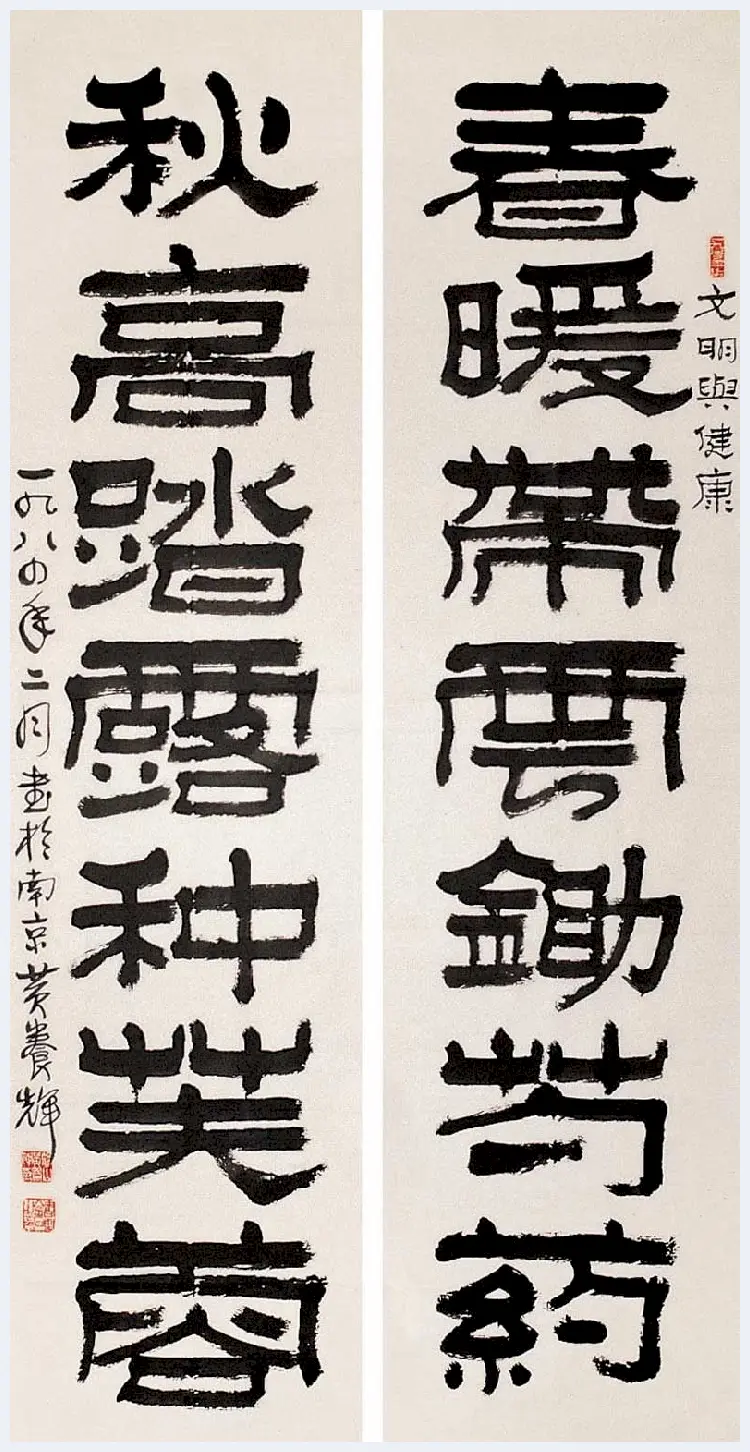 文明與健康
春暖帶雲鋤芍葯
秋高踏露种芙蓉
一九八四年二月书於南京黄養輝